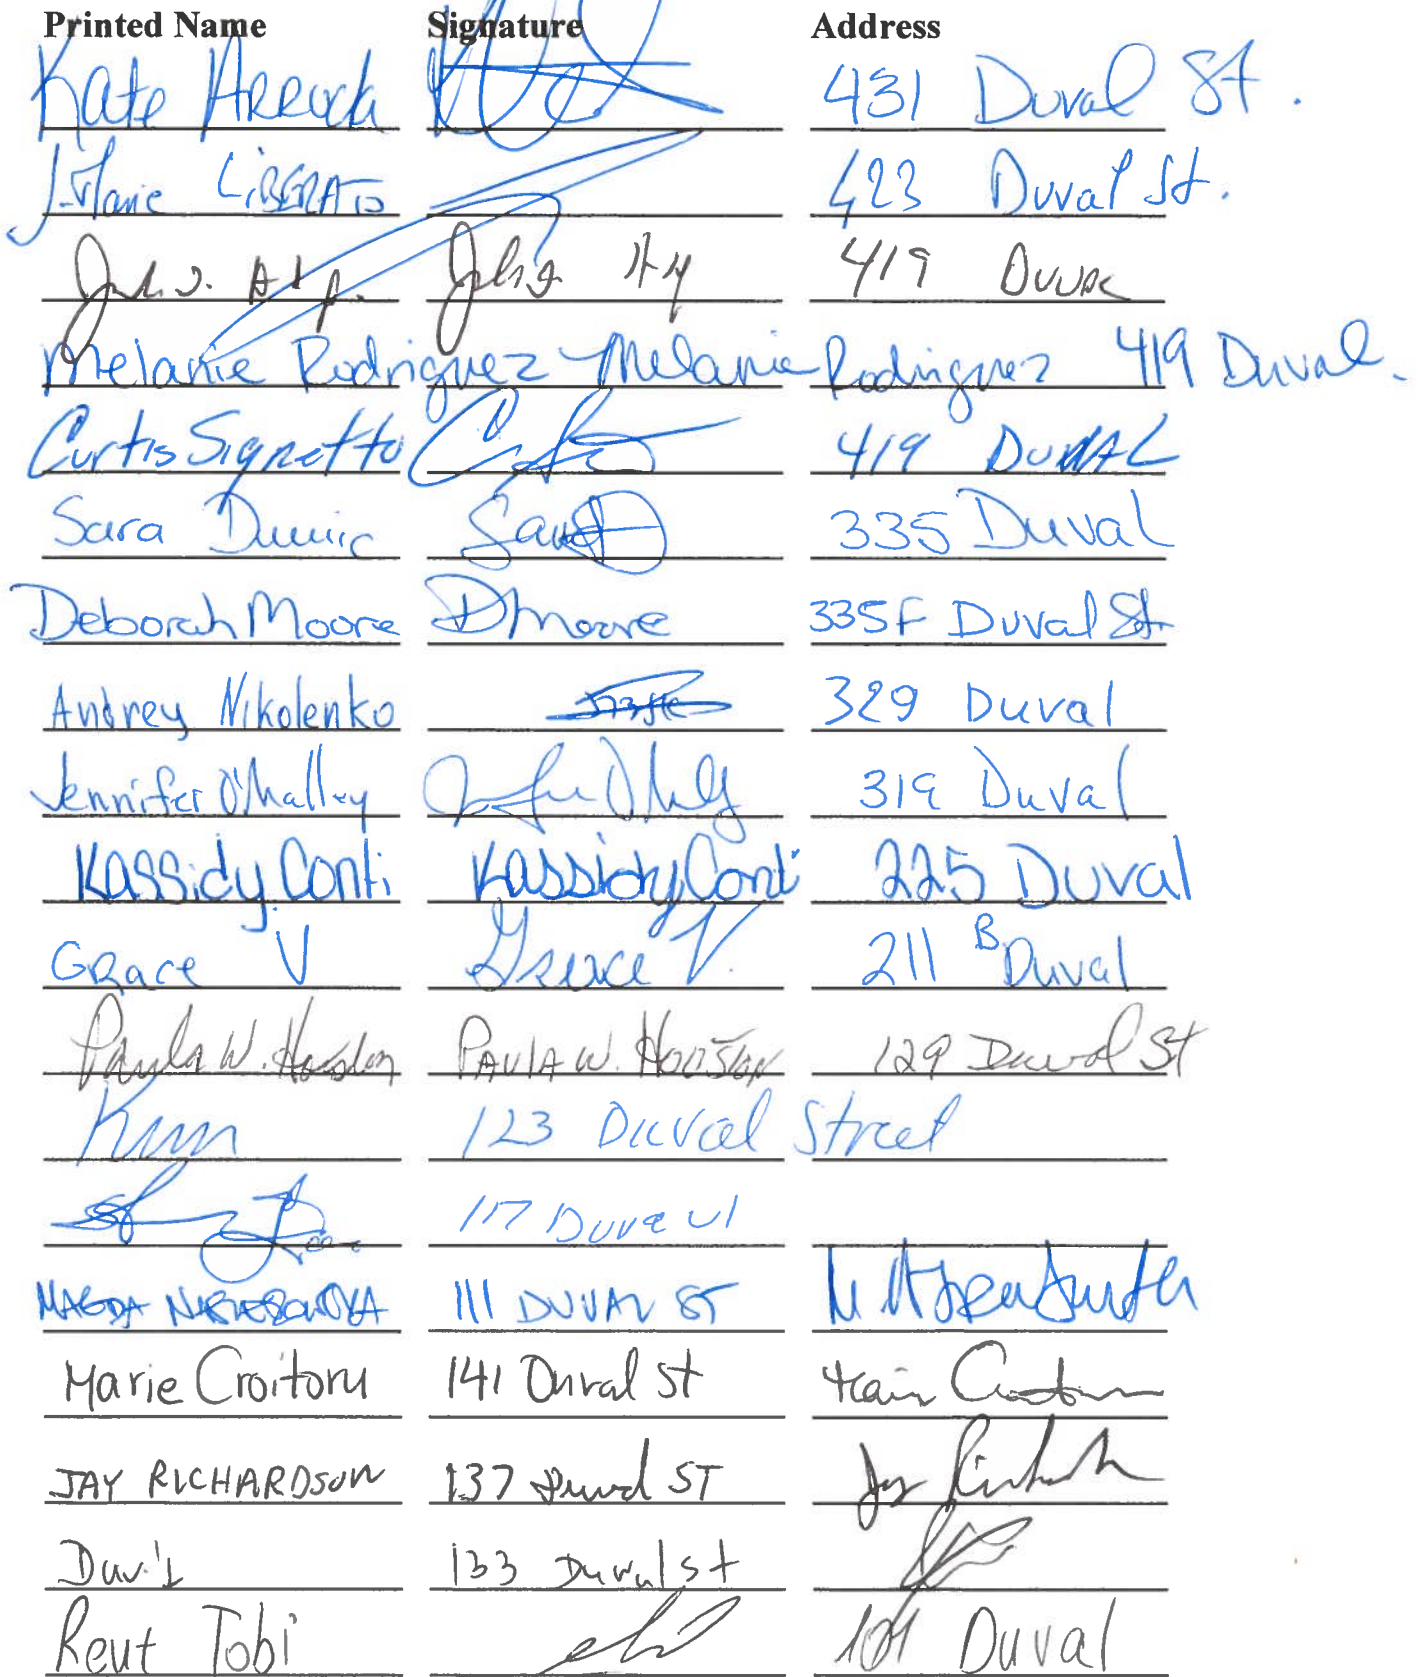 Printed Name Signature Address
Kate 431 Duval St.
LIBERATO 423 Duval St.
419 Duval
Melanie Rodriguez Melanie Rodriguez 419 Duval.
Curtis Signetto 419 DUVAL
Sara 335 Duval
Deborah Moore DMoore 335F Duval St.
Andrey Nikolenko 329 Duval
Jennifer O'Malley 319 Duval
Kassidy Conti Kassidy Conti 225 Duval
Grace V Grace V. 211 B Duval
Paula W. Houston PAULA W. HOUSTON 129 Duval St
123 Duval Street
117
MAGDA 111 DUVAL ST
Marie Croitoru 141 Duval St
JAY RICHARDSON 137 Duval ST Jay Richardson
133 Duval St
Reut Tobi Duval